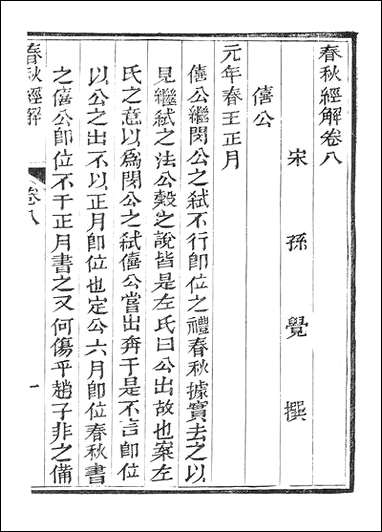 春秋經解卷八
宋 孫 覺 撰
僖公
元年春王正月
僖公繼閔公之弑不行即位之禮春秋據實去之以
見繼弑之法公穀之說皆是左氏曰公出故也案左
氏之意以爲閔公之弑僖公嘗出奔于是不言即位
以公之出不以正月即位也定公六月即位春秋書
之僖公即位不于正月書之又何傷乎趙子非之備
春秋經解
卷八
一